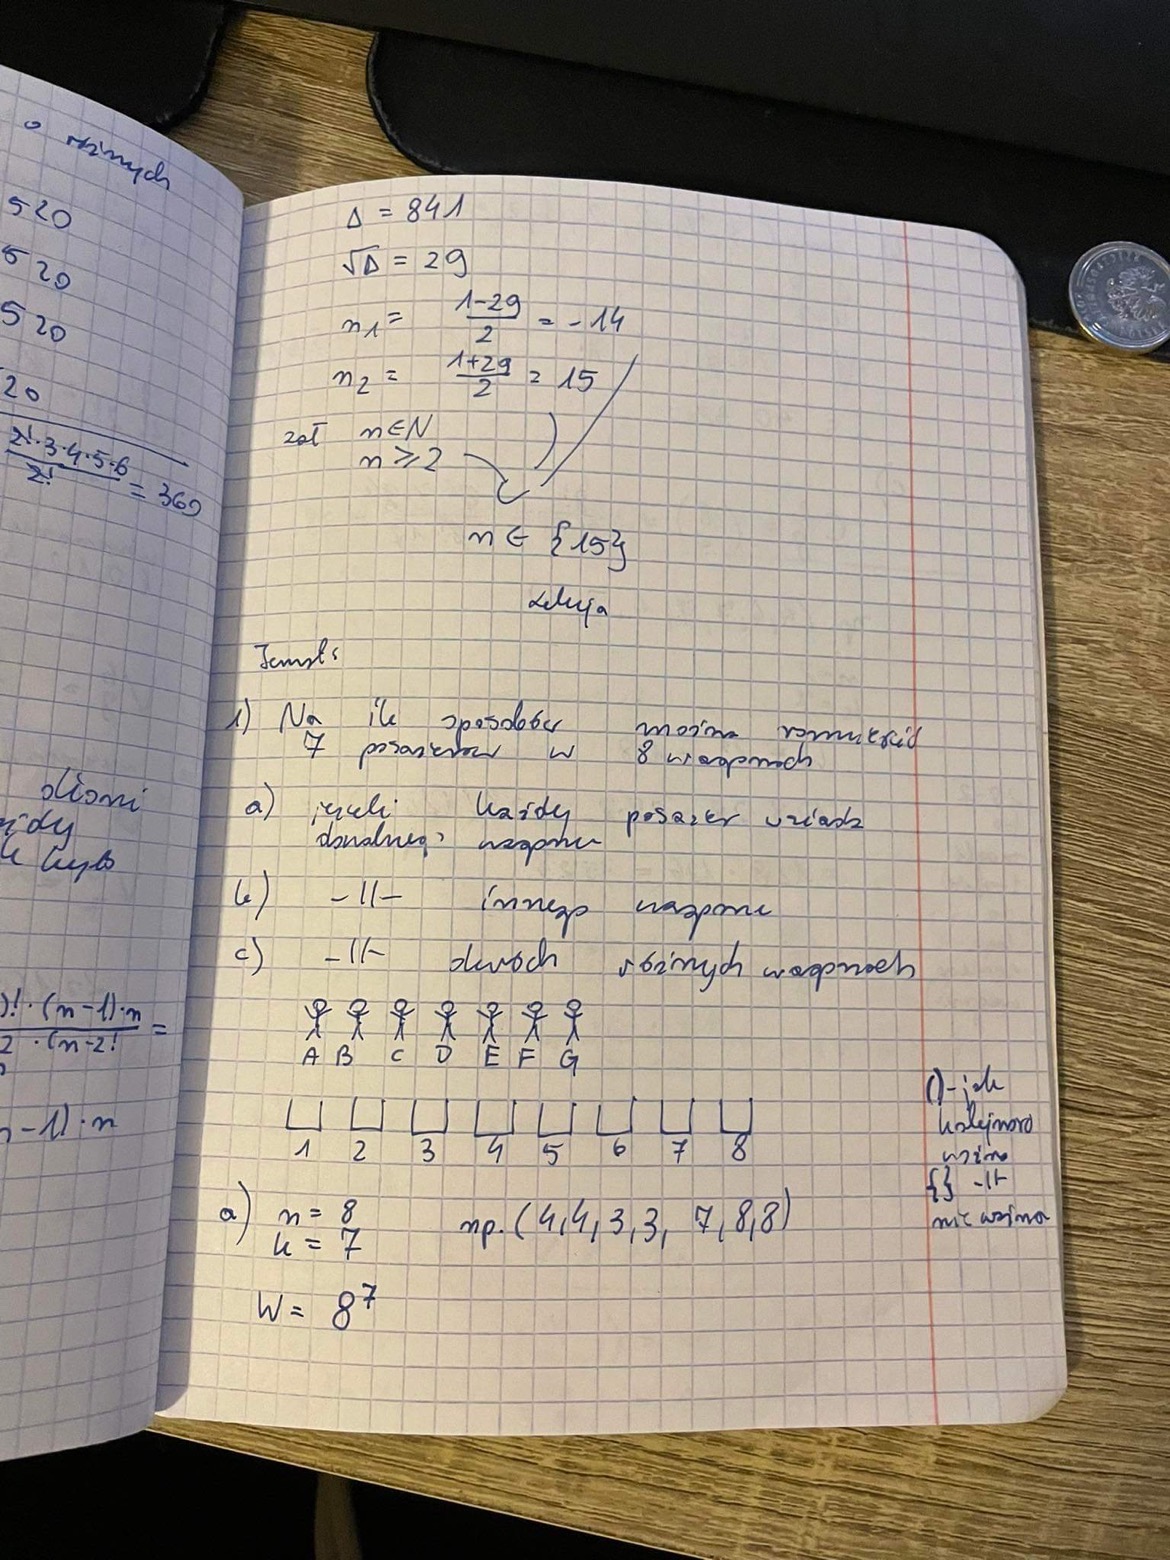 o różnych
520
520
520
20
2!·3·4·5·6
2!
= 360
dłoni
każdy
)!·(n-1)·n
2·(n-2!
=
-1)·n
Δ = 841
√Δ = 29
n1 = 1-29 / 2 = -14
n2 = 1+29 / 2 = 15
zał n∈N
n ≥ 2
n ∈ {15}
Lekcja
Temat:
1) Na ile sposobów można rozmieścić
7 pasażerów w 8 wagonach
a) jeżeli każdy pasażer wsiada
wagonu
b) -||- innego wagonu
c) -||- dwóch różnych wagonach
A B C D E F G
1 2 3 4 5 6 7 8
a) n = 8 np. (4,4,3,3, 7,8,8)
k = 7
W = 8⁷
()-jak
kolejność
ważna
{} -||-
nie ważna